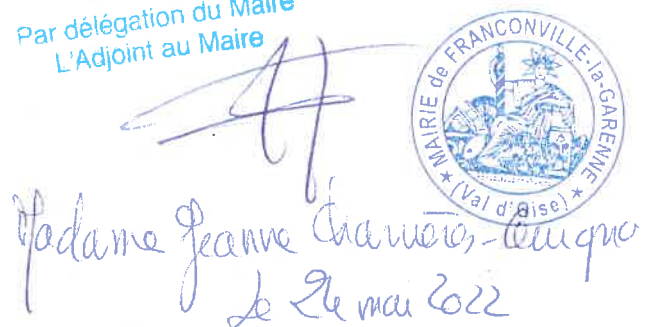 Par délégation du Maire
L'Adjoint au Maire
MAIRIE de FRANCONVILLE-la-GARENNE
(Val d'Oise)
Madame Jeanne
le mai 2022